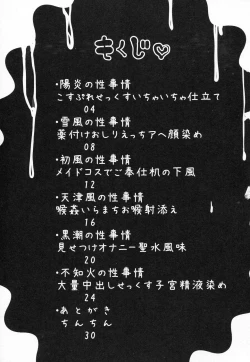 もくじ♡
・陽炎の性事情
こすぷれせっくすいちゃいちゃ仕立て
04
・雪風の性事情
薬付けおしりえっちアヘ顔染め
08
・初風の性事情
メイドコスでご奉仕机の下風
12
・天津風の性事情
喉姦いらまちお喉射添え
16
・黒潮の性事情
見せつけオナニー聖水風味
20
・不知火の性事情
大量中出しせっくす子宮精液染め
24
・あとがき
ちんちん
30